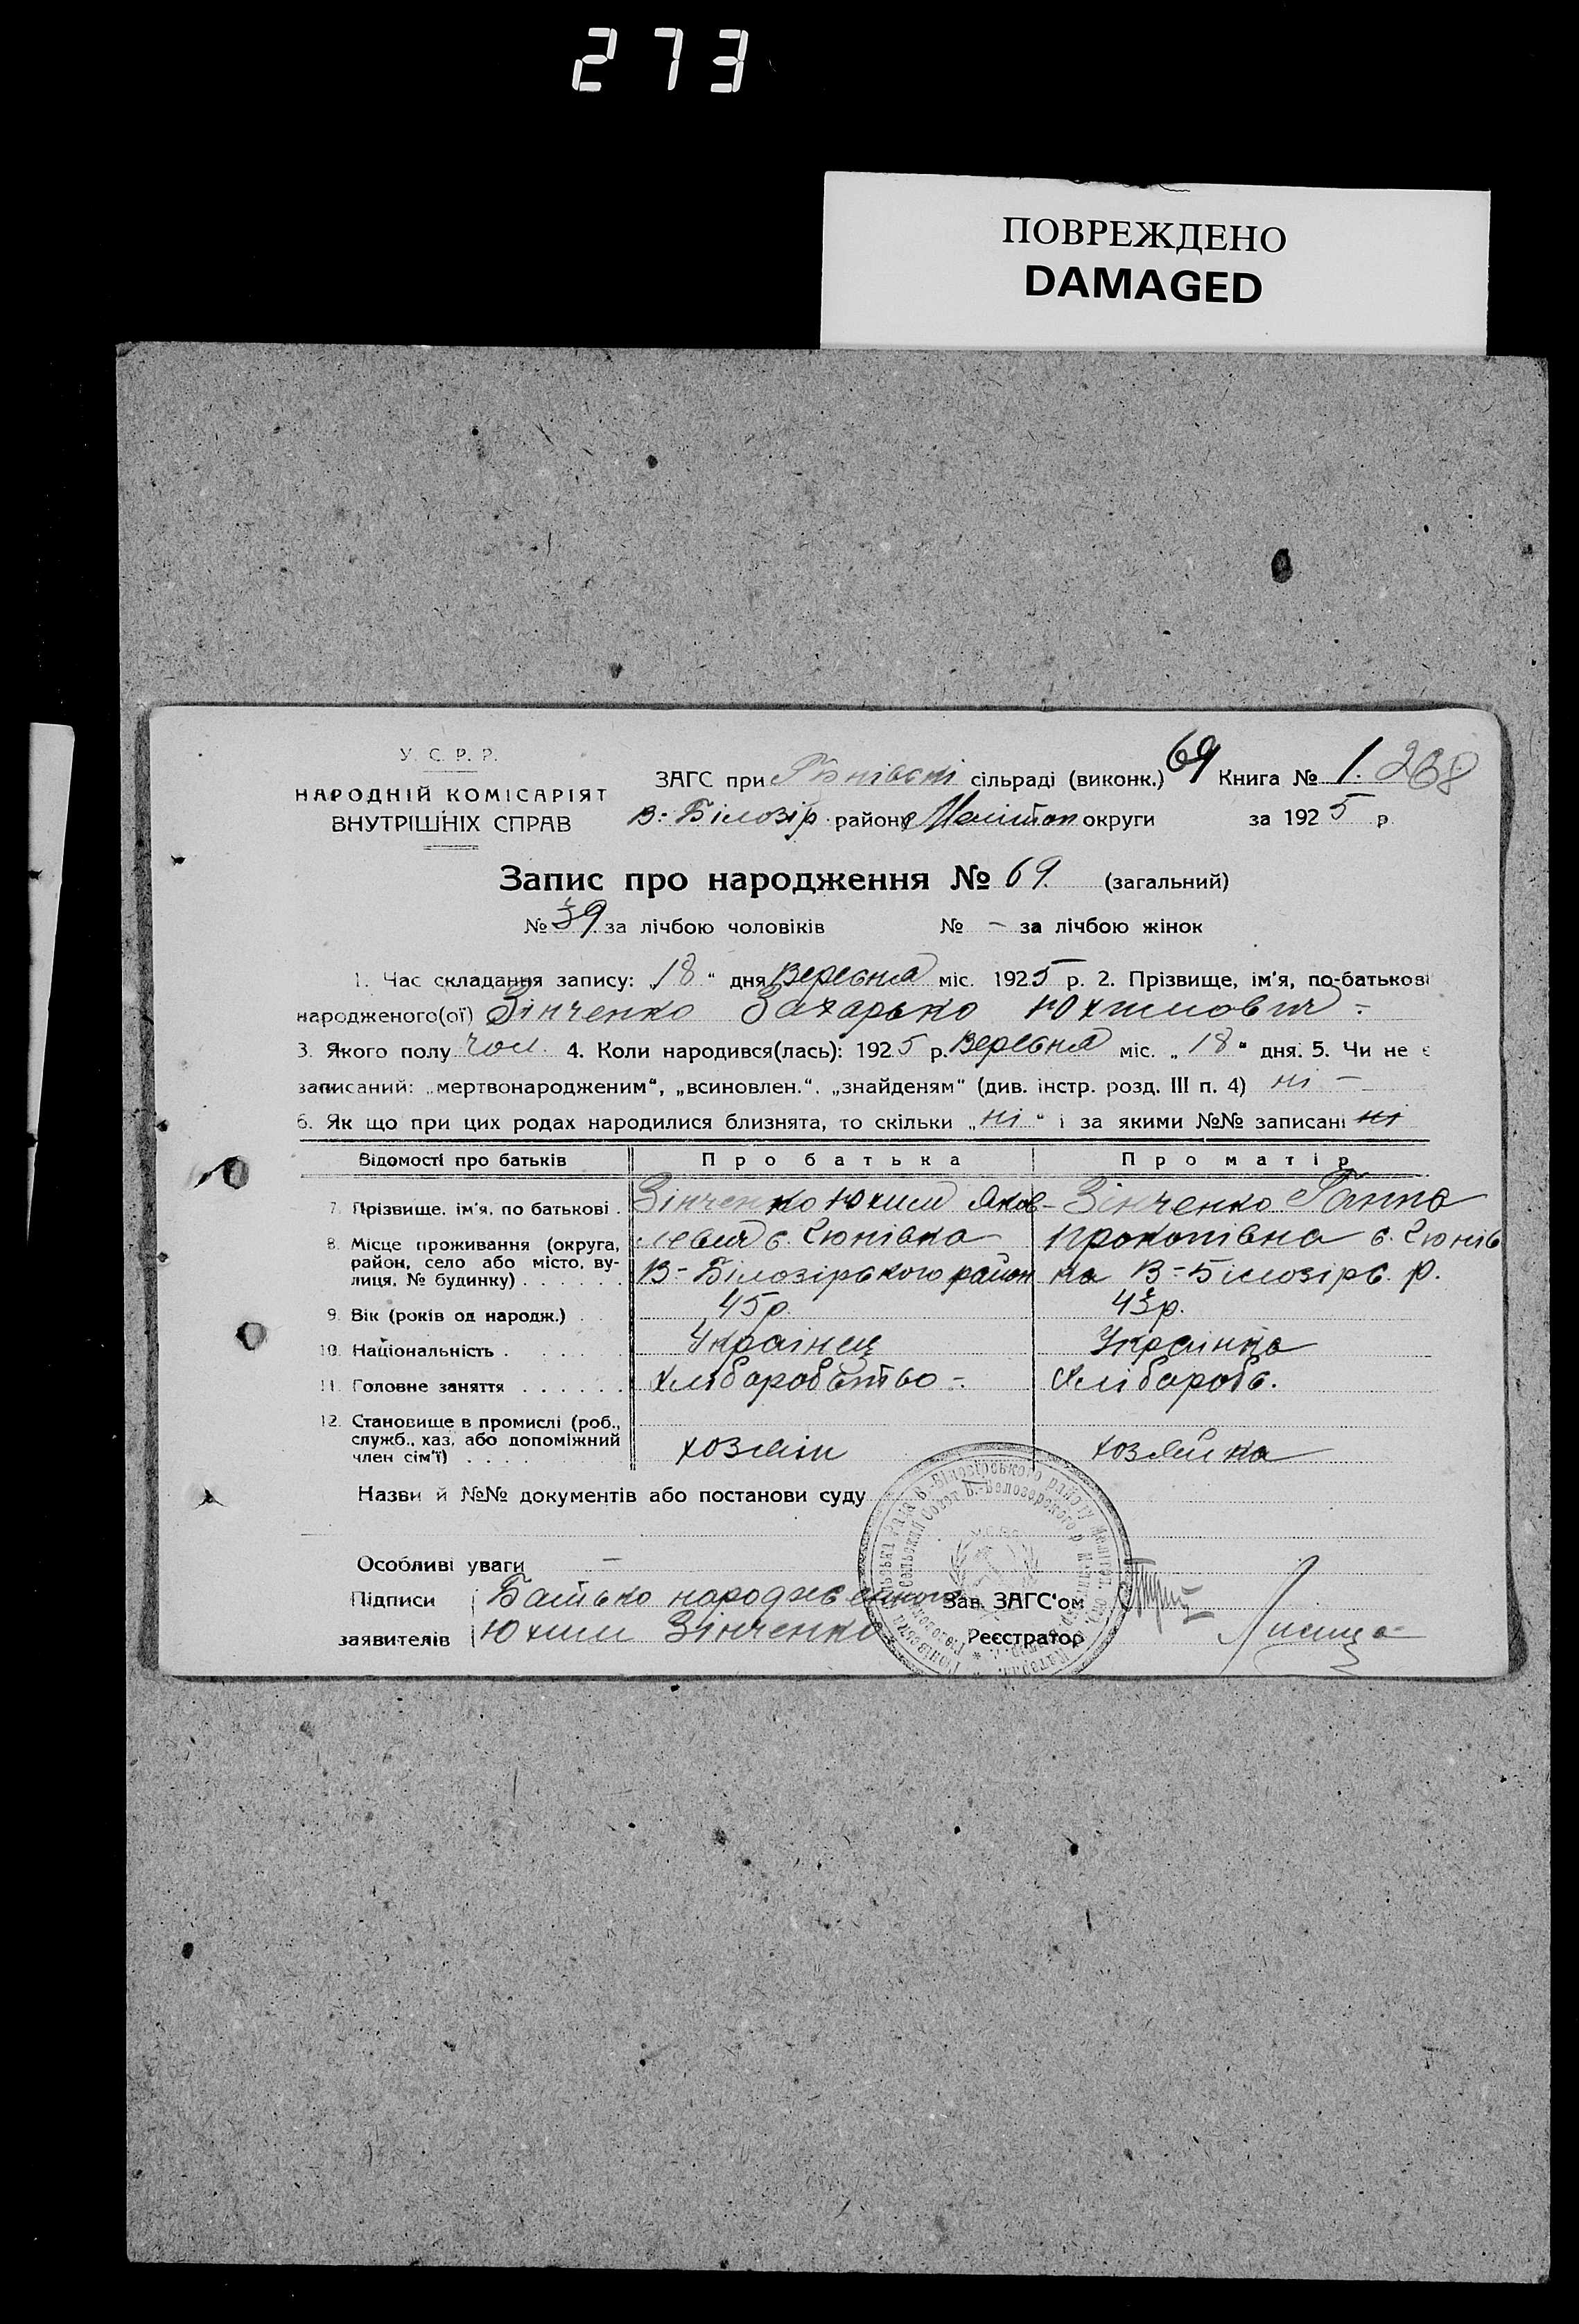 273
ПОВРЕЖДЕНО
DAMAGED
У. С. Р. Р.
НАРОДНІЙ КОМІСАРІЯТ
ВНУТРІШНІХ СПРАВ
ЗАГС при сільраді (виконк.) 69 Книга № 1. 268
В-Білозір. району Мелітоп округи за 1925 р.
Запис про народження № 69. (загальний)
№ 39 за лічбою чоловіків № – за лічбою жінок
1. Час складання запису: „18“ дня Вересня міс. 1925 р. 2. Прізвище, ім'я, по-батькові
народженого(ої) Зінченко Захарько Юхимович -
3. Якого полу чол. 4. Коли народився(лась): 1925 р. Вересня міс. „18“ дня. 5. Чи не є
записаний: „мертвонародженим“, „всиновлен.“, „знайденям“ (див. інстр. розд. III п. 4) ні –
6. Як що при цих родах народилися близнята, то скільки „ні“ і за якими №№ записані ні
Відомості про батьків Про батька Про матір
7. Прізвище, ім'я, по батькові . Зінченко Юхим Яков- Зінченко Ганна
8. Місце проживання (округа, левич с. Гюнівка Прокопівна с. Гюнів
район, село або місто, ву-
лиця, № будинку) . . . . . . В-Білозірського район ка В-Білозірс. р.
9. Вік (років од народж.) . 45 р. 43 р.
10. Національність . . . . . Українец Українка
11. Головне заняття . . . . . . Хлібаробство -. Хлібороб.
12. Становище в промислі (роб.,
служб., хаз, або допоміжний
член сім'ї) . . . . хозяін хозяйка
Назви й №№ документів або постанови суду
Особливі уваги –
Підписи Батько народженного Зав. ЗАГС'ом
заявителів Юхим Зінченко Реєстратор Лисица